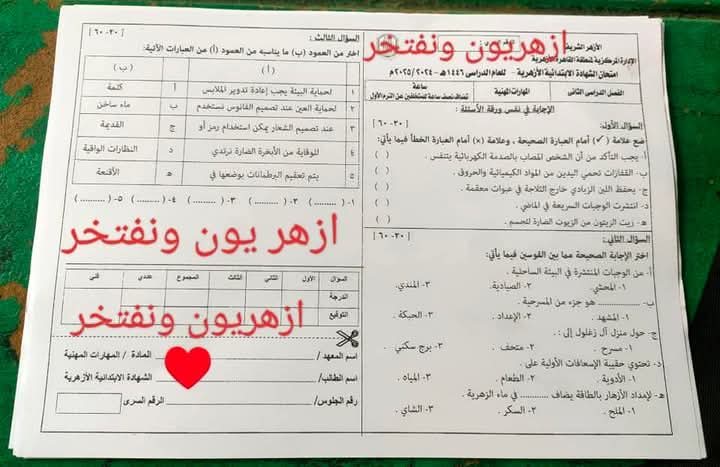 الأزهر الشريف
الإدارة المركزية لمنطقة القاهرة الأزهرية
امتحان الشهادة الابتدائية الأزهرية – للعام الدراسى ١٤٤٦هـ - ٢٠٢٤/٢٠٢٥م
ازهريون ونفتخر
الفصل الدراسى الثانى
المهارات المهنية
ساعة
تضاف نصف ساعة للمتخلفين عن الترم الأول
الإجابة في نفس ورقة الأسئلة :
السؤال الأول:
[ ٣٠- ٦٠ ]
ضع علامة (✓) أمام العبارة الصحيحة ، وعلامة (×) أمام العبارة الخطأ فيما يأتي:
أ- يجب التأكد من أن الشخص المصاب بالصدمة الكهربائية يتنفس . ( )
ب- القفازات تحمي اليدين من المواد الكيميائية والحروق . ( )
ج- يحفظ اللبن الزبادي خارج الثلاجة في عبوات معقمة . ( )
د- انتشرت الوجبات السريعة في الماضي . ( )
هـ- زيت الزيتون من الزيوت الضارة للجسم . ( )
السؤال الثاني:
[ ٣٠- ٦٠ ]
اختر الإجابة الصحيحة مما بين القوسين فيما يأتي:
أ- من الوجبات المنتشرة في البيئة الساحلية .
١- المحشي . ٢- الصيادية. ٣- المندي.
ب- ............ هو جزء من المسرحية .
١- المشهد . ٢- الإعداد . ٣- الحبكة .
ج- حول منزل آل زغلول إلى :
١- مسرح . ٢- متحف . ٣- برج سكني .
د- تحتوي حقيبة الإسعافات الأولية على .
١- الأدوية . ٢- الطعام . ٣- المياه .
هـ- لإمداد الأزهار بالطاقة يضاف ............ في ماء الزهرية .
١- الملح . ٢- السكر . ٣- الشاي .
السؤال الثالث :
[ ٣٠- ٦٠ ]
اختر من العمود (ب) ما يناسبه من العمود (أ) من العبارات الآتية:
( أ ) ( ب )
١ لحماية البيئة يجب إعادة تدوير الملابس أ كلمة
٢ لحماية العين عند تصميم الفانوس نستخدم ب ماء ساخن
٣ عند تصميم الشعار يمكن استخدام رمز أو ج القديمة
٤ للوقاية من الأبخرة الضارة نرتدي د النظارات الواقية
٥ يتم تعقيم البرطمانات بوضعها في هـ الأقنعة
١- (........) ٢- (........) ٣- (........) ٤- (........) ٥- (........)
ازهر يون ونفتخر
السؤال الأول الثاني الثالث المجموع عددي فني
الدرجة
التوقيع
ازهريون ونفتخر
اسم المعهد/ المادة / المهارات المهنية
اسم الطالب/ الشهادة الابتدائية الأزهرية
رقم الجلوس/ الرقم السرى